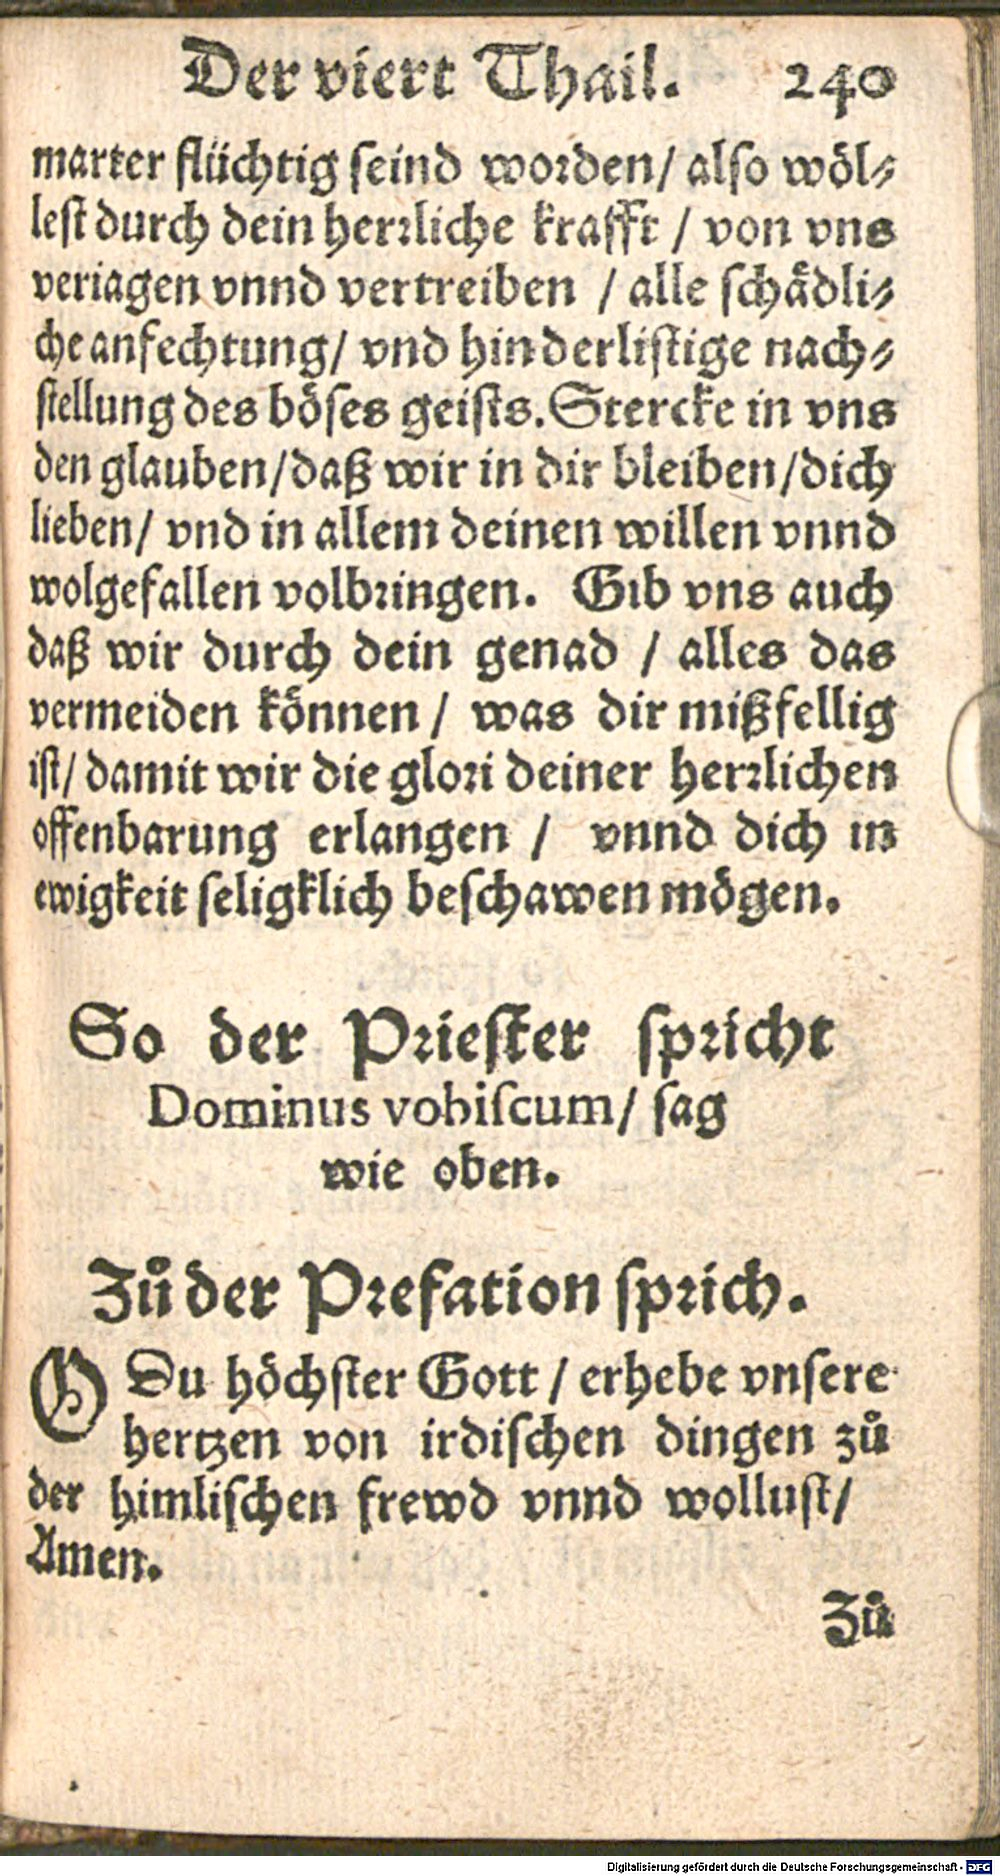 Der viert Thail. 240
marter flüchtig seind worden/ also wöl⸗
lest durch dein herꝛliche krafft / von vns
veriagen vnnd vertreiben / alle schådli⸗
che anfechtung/ vnd hinderlistige nach⸗
stellung des böses geists. Stercke in vns
den glauben/ daß wir in dir bleiben/ dich
lieben/ vnd in allem deinen willen vnnd
wolgefallen volbꝛingen. Gib vns auch
daß wir durch dein genad / alles das
vermeiden können/ was dir mißfellig
ist/ damit wir die gloꝛi deiner herꝛlichen
offenbarung erlangen / vnnd dich in
ewigkeit seligklich beschawen mögen.
So der Pꝛiester spꝛicht
Dominus vobiscum/ sag
wie oben.
Zů der Pꝛefation spꝛich.
O Du höchster Gott / erhebe vnsere
hertzen von irdischen dingen zů
der himlischen frewd vnnd wollust/
Amen.
Zů
Digitalisierung gefördert durch die Deutsche Forschungsgemeinschaft - DFG